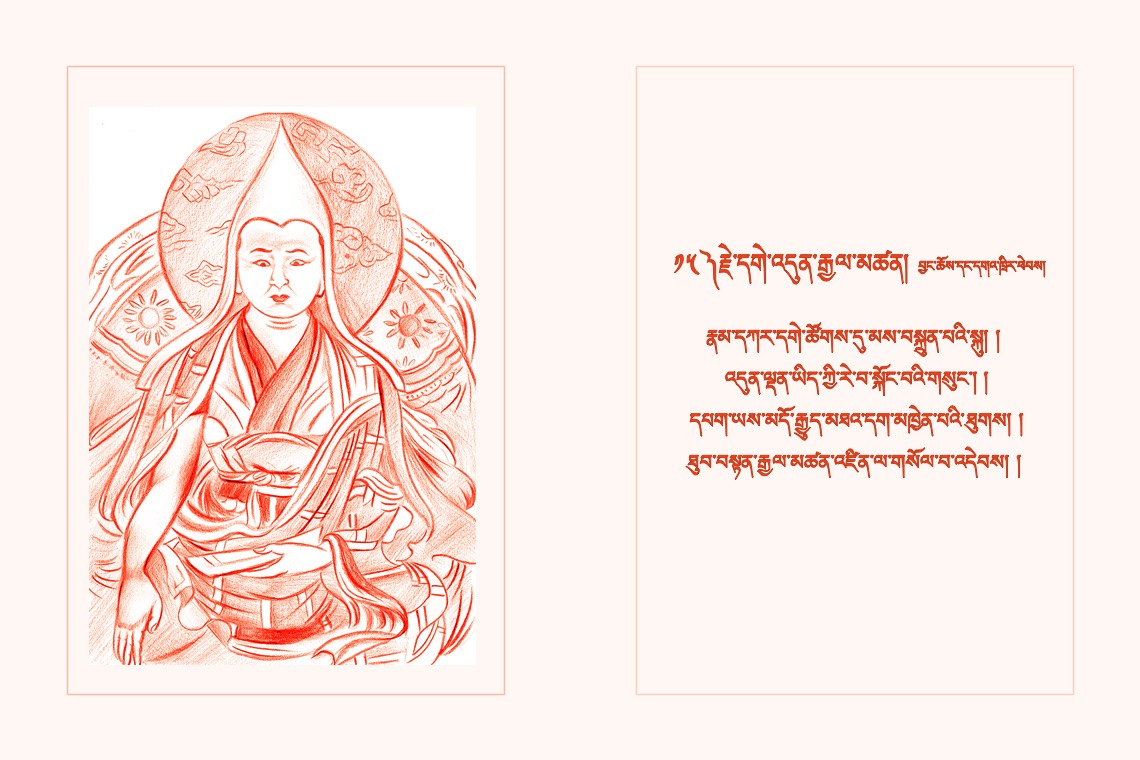 ༡༥ ༽རྗེ་དགེ་འདུན་རྒྱལ་མཚན། བྱང་ཆོས་དང་དགའ་ཁྲིར་ཕེབས།
རྣམ་དཀར་དགེ་ཚོགས་དུ་མས་བསྐྲུན་པའི་སྐུ། །
འདུན་ལྡན་ཡིད་ཀྱི་རེ་བ་སྐོང་བའི་གསུང་། །
དཔག་ཡས་མདོ་རྒྱུད་མཐའ་དག་མཁྱེན་པའི་ཐུགས། །
ཐུབ་བསྟན་རྒྱལ་མཚན་འཛིན་ལ་གསོལ་བ་འདེབས། །